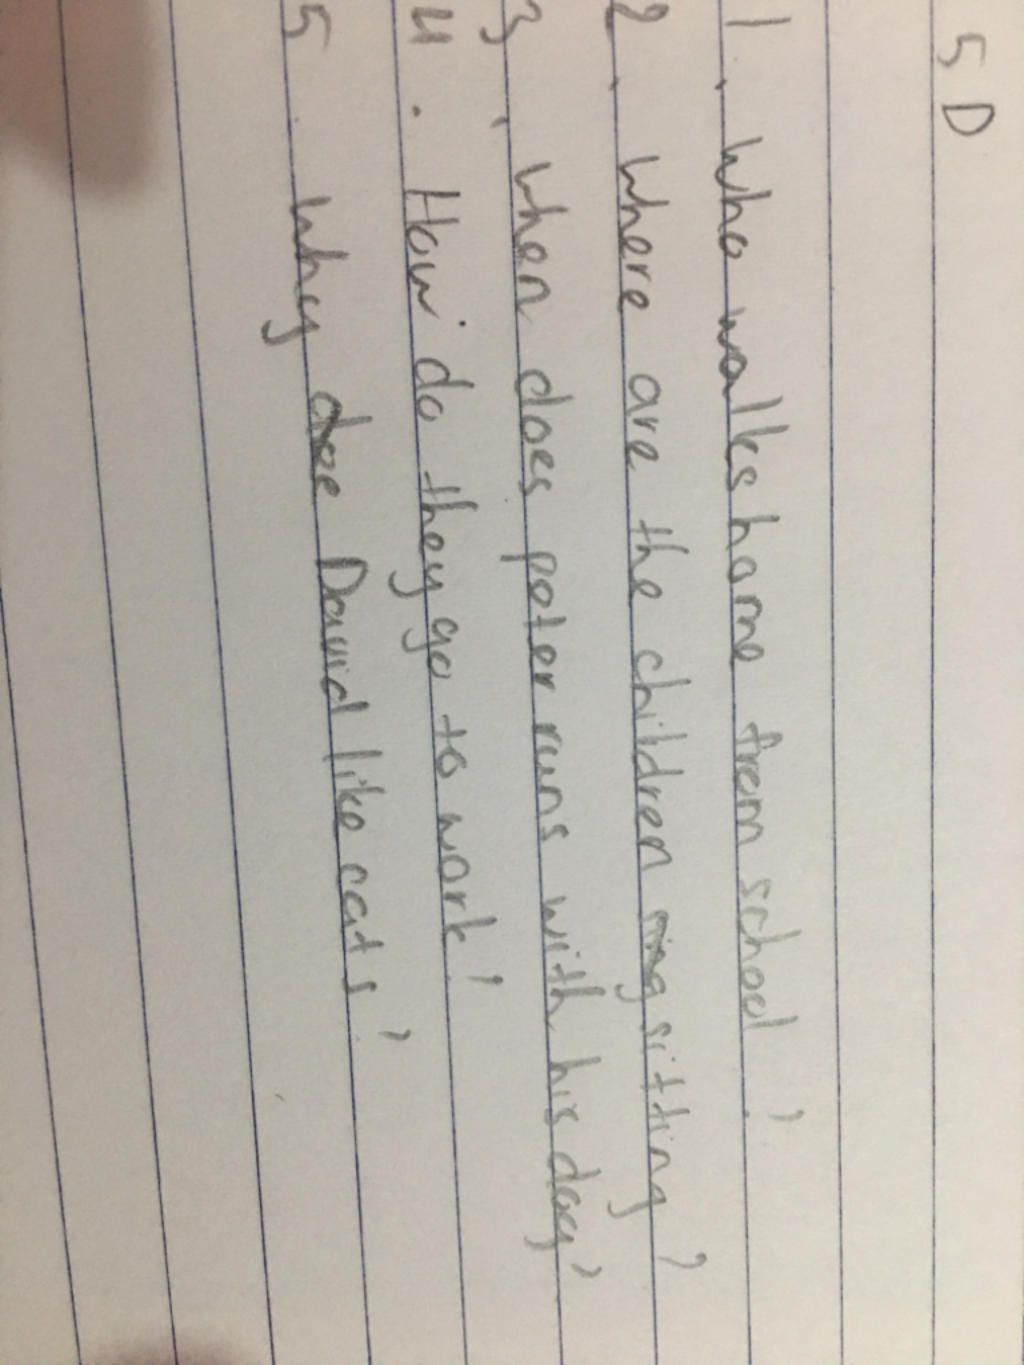 5 D
1. Who walks home from school?
2. where are the children sitting?
3. when does peter runs with his dog?
4. How do they go to work?
5. why doe David like cats?